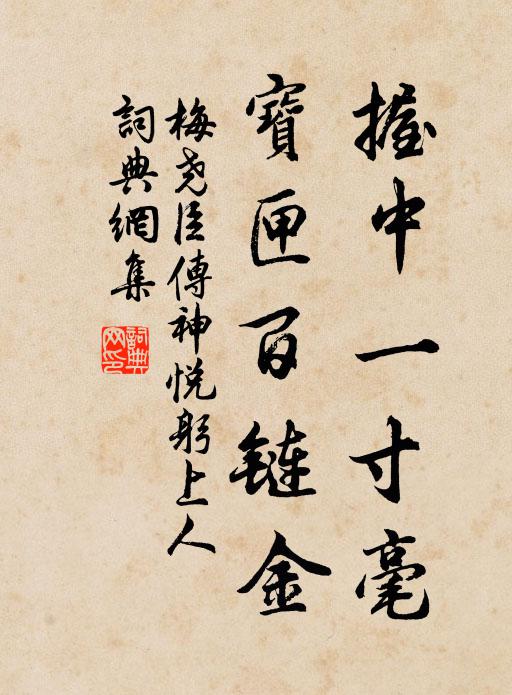 握中一寸毫
寶匣百鏈金
梅尧臣傳神悅躬上人
詞典網集
詞典
网印